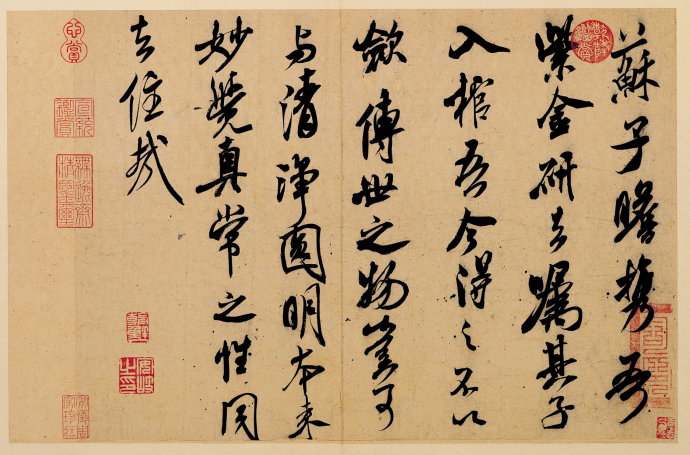 蘇子瞻携吾
紫金研去嘱其子
入棺吾今得之不以
斂傳世之物豈可
与清淨圓明本来
妙覺真常之性同
去住哉